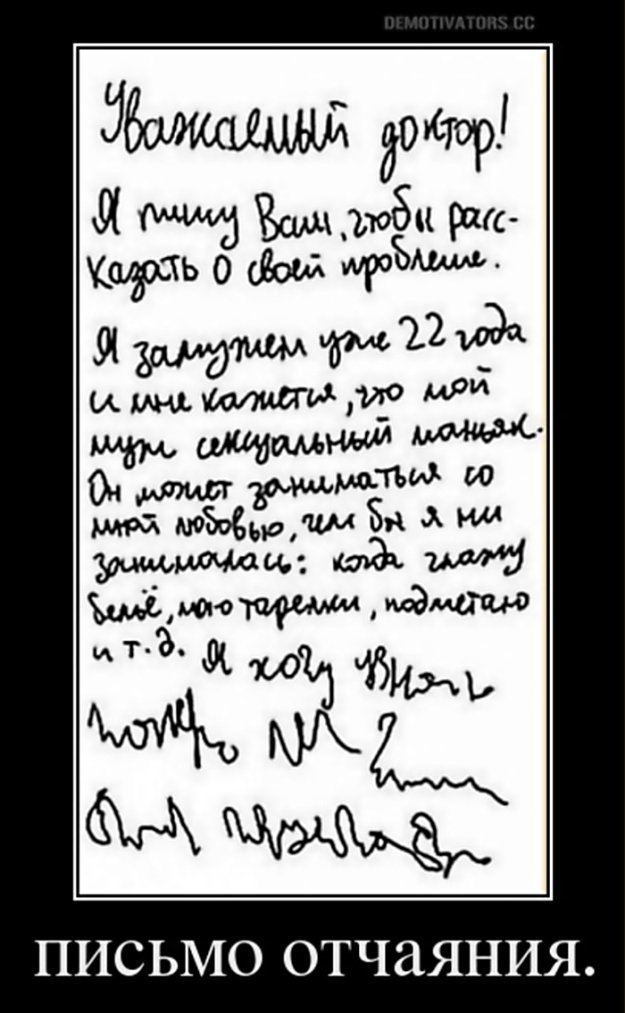 DEMOTIVATORS.CC
Уважаемый доктор!
Я пишу Вам, чтобы расс-
казать о своей проблеме.
Я замужем уже 22 года
и мне кажется, что мой
муж сексуальный маньяк.
Он может заниматься со
мной любовью, чем бы я ни
занималась: когда глажу
бельё, мою тарелки, подметаю
и т.д. Я хочу узнать
письмо отчаяния.